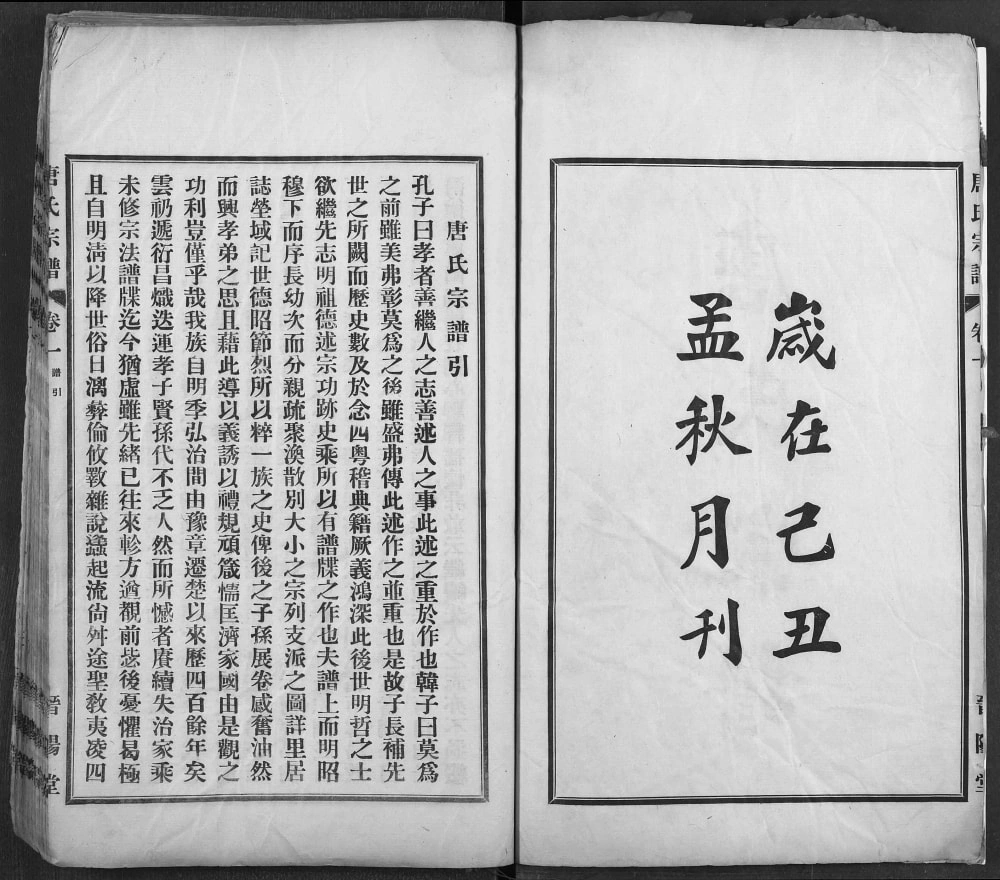 唐氏宗譜
卷一
晉陽堂
歲在己丑
孟秋月刊
唐氏宗譜引
孔子曰孝者善繼人之志善述人之事此述之重於作也韓子曰莫爲
之前雖美弗彰莫爲之後雖盛弗傳此述作之並重也是故子長補先
世之所闕而歷史數及於念四粵稽典籍厥義鴻深此後世明哲之士
欲繼先志明祖德述宗功跡史乘所以有譜牒之作也夫譜上而明昭
穆下而序長幼次而分親疏聚渙散別大小之宗列支派之圖詳里居
誌塋域記世德昭節烈所以粹一族之史俾後之子孫展卷感奮油然
而興孝弟之思且藉此導以義誘以禮規頑箴懦匡濟家國由是觀之
功利豈僅乎哉我族自明季弘治間由豫章遷楚以來歷四百餘年矣
雲礽遞衍昌熾迭運孝子賢孫代不乏人然而所憾者賡續失治家乘
未修宗法譜牒迄今猶虛雖先緒已往來軫方遒覩前毖後憂懼曷極
且自明清以降世俗日漓彝倫攸斁雜說蠭起流尙舛途聖敎夷凌四
唐氏宗譜
卷一
譜引
晉陽堂